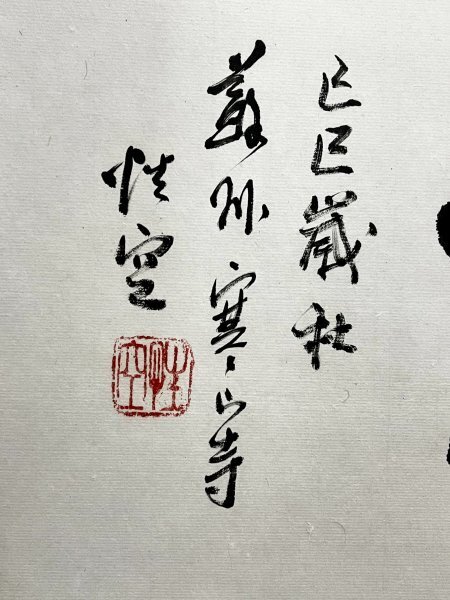 己巳歲秋
蘇州寒山寺
性空
性空